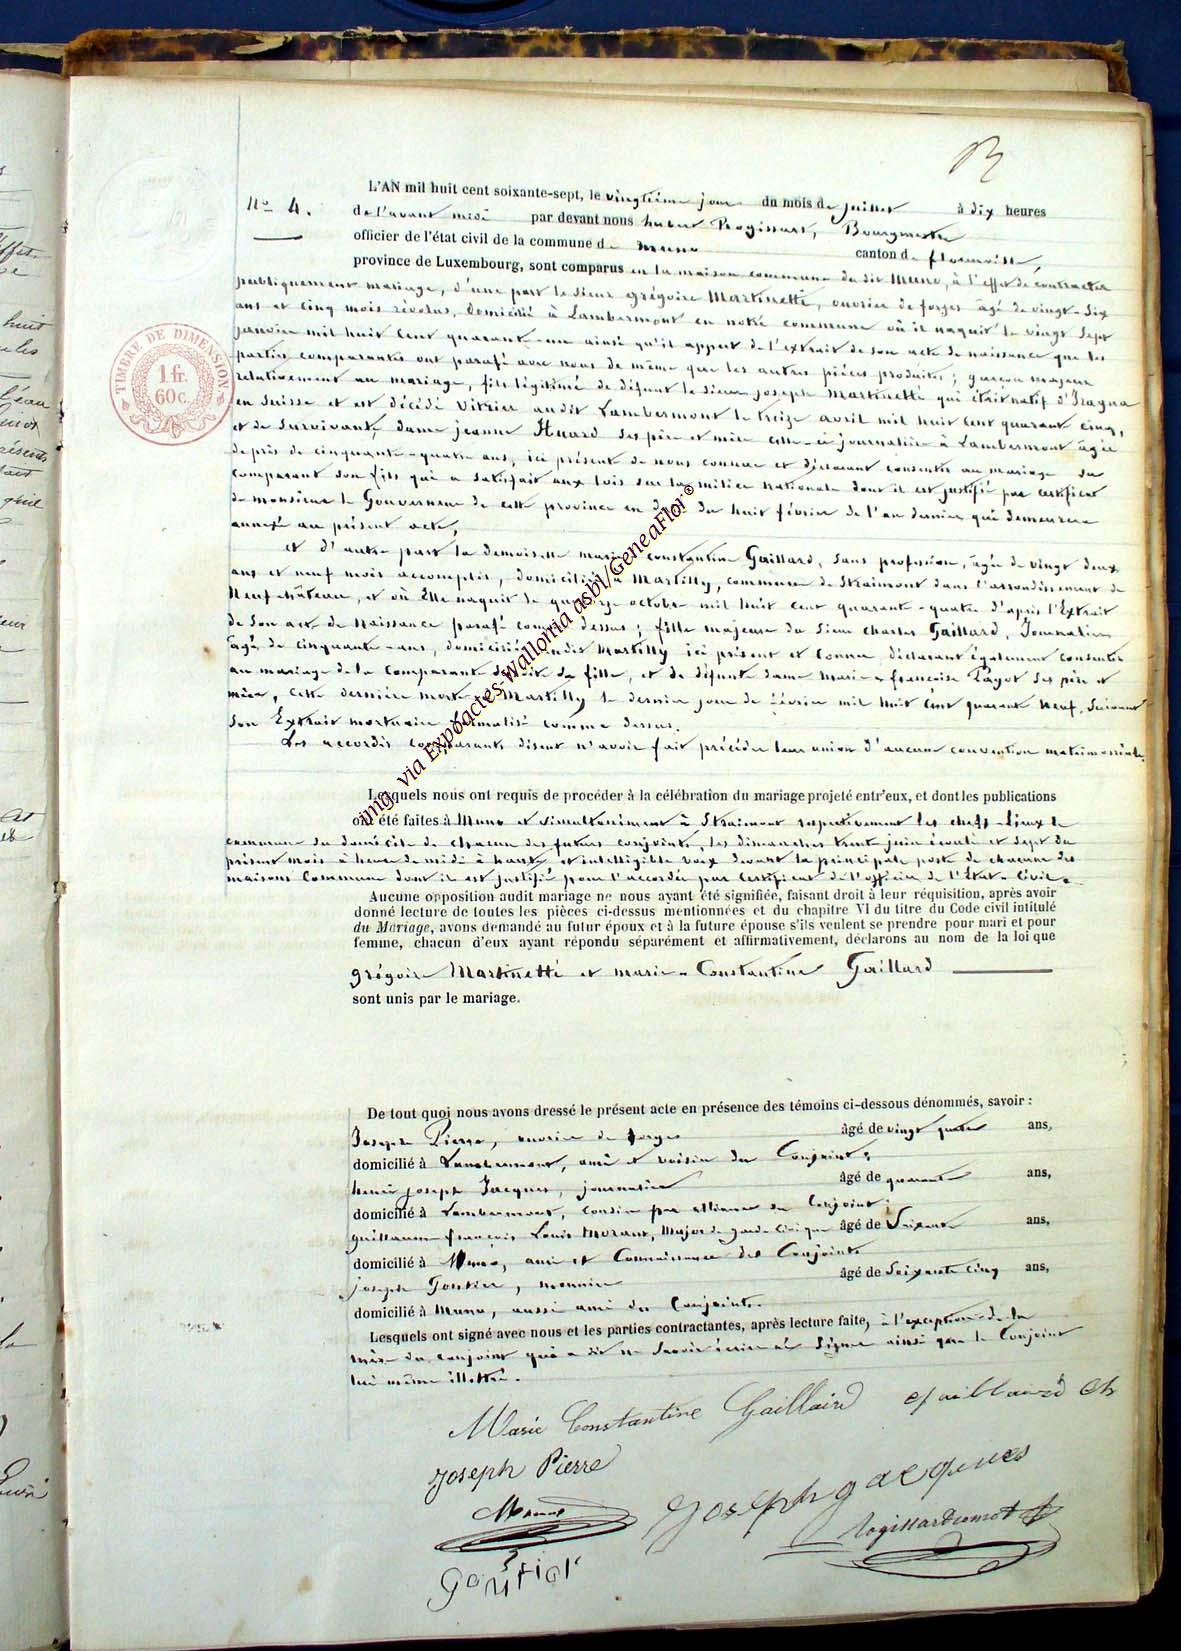 N° 4.
L'AN mil huit cent soixante-sept, le vingtième jour du mois de juillet à dix heures
de l'avant midi par devant nous hubert Rogissart, Bourgmestre
officier de l'état civil de la commune de muno canton de florenville,
province de Luxembourg, sont comparus en la maison commune du dit Muno, à l'effet de contracter
publiquement mariage, d'une part le sieur grégoire Martinetti, ouvrier de forges âgé de vingt-six
ans et cinq mois révolus, domicilié à Lambermont en notre commune où il naquit le vingt sept
janvier mil huit cent quarante-un ainsi qu'il appert de l'extrait de son acte de naissance que les
parties comparantes ont parafé avec nous de même que les autres pièces produites; garçon majeur
relativement au mariage, fils légitime de défunt le sieur joseph Martinetti qui était natif d'Iragna
en Suisse et est décédé vitrier audit Lambermont le treize avril mil huit cent quarante cinq,
et de survivante, dame jeanne Huard ses père et mère celle-ci journalière à Lambermont âgée
de près de cinquante-quatre ans, ici présente de nous connue et déclarant consentir au mariage du
comparant son fils qui a satisfait aux lois sur la milice nationale dont il est justifié par certificat
de monsieur le Gouverneur de cette province en date du huit février de l'an dernier qui demeurera
annexé au présent acte,
et d'autre part la demoiselle marie-constantine Gaillard, sans profession, âgée de vingt deux
ans et neuf mois accomplis, domiciliée à Martilly, commune de Straimont dans l'arrondissement de
Neufchâteau, et où Elle naquit le quatorze octobre mil huit cent quarante-quatre d'après l'Extrait
de son acte de Naissance parafé comme dessus; fille majeure du Sieur Charles Gaillard, Journalier
âgé de cinquante-ans, domicilié audit Martilly ici présent et connu, déclarant également consentir
au mariage de la comparante sa dite fille, et de défunte dame Marie-françoise Pagot ses père et
mère, cette dernière morte à Martilly le dernier jour de février mil huit cent quarante neuf, suivant
son Extrait mortuaire formalisé comme dessus.
Les accordés comparants disent n'avoir fait précéder leur union d'aucune convention matrimoniale.
Lesquels nous ont requis de procéder à la célébration du mariage projeté entr'eux, et dont les publications
ont été faites à Muno et simultanément à Straimont respectivement les chefs-lieux de
commune du domicile de chacun des futurs conjoints, les dimanches trente juin écoulé et sept du
présent mois à heure de midi à haute et intelligible voix devant la principale porte de chacune des
maisons Commune dont il est justifié pour l'accordée par certificat de l'officier de l'État-Civil.
Aucune opposition audit mariage ne nous ayant été signifiée, faisant droit à leur réquisition, après avoir
donné lecture de toutes les pièces ci-dessus mentionnées et du chapitre VI du titre du Code civil intitulé
du Mariage, avons demandé au futur époux et à la future épouse s'ils veulent se prendre pour mari et pour
femme, chacun d'eux ayant répondu séparément et affirmativement, déclarons au nom de la loi que
grégoire Martinetti et marie-Constantine Gaillard
sont unis par le mariage.
De tout quoi nous avons dressé le présent acte en présence des témoins ci-dessous dénommés, savoir :
Joseph Pierre, ouvrier de forges âgé de vingt quatre ans,
domicilié à Lambermont, ami et voisin du Conjoint;
henri joseph Jacques, journalier âgé de quarante ans,
domicilié à Lambermont, cousin par alliance du Conjoint;
guillaume françois Louis Morant, Major de garde Civique âgé de Soixante ans,
domicilié à Muno, ami et Connaissance des Conjoints
joseph Goutier, meunier âgé de Soixante cinq ans,
domicilié à Muno, aussi ami des Conjoints.
Lesquels ont signé avec nous et les parties contractantes, après lecture faite, à l'exception de la
mère du conjoint qui a dit ne savoir écrire ni Signer ainsi que le Conjoint
lui même illettré.
Marie Constantine Gaillaird gaillaird Ch
joseph Pierre
joseph jacques
TIMBRE DE DIMENSION
1 fr.
60 c.
img. via Expoactes-Wallonia asbl/GeneaFlor©